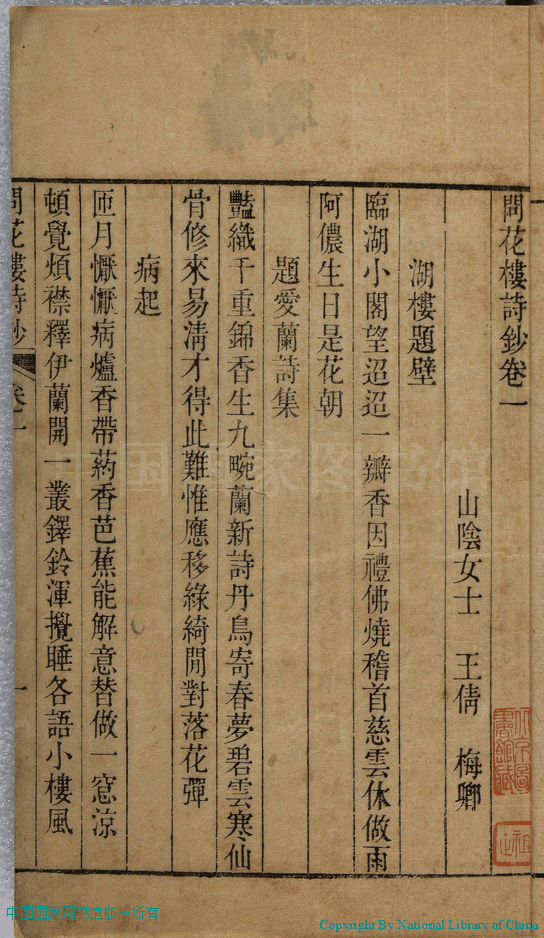 問花樓詩鈔卷一
山陰女士 王倩 梅卿
湖樓題壁
臨湖小閣望迢迢一瓣香因禮佛燒稽首慈雲休做雨
阿儂生日是花朝
題愛蘭詩集
豔織千重錦香生九畹蘭新詩丹鳥寄春夢碧雲寒仙
骨修來易淸才得此難惟應移綠綺閒對落花彈
病起
匝月懨懨病爐香帶葯香芭蕉能解意替做一窓涼
頓覺煩襟釋伊蘭開一叢鐸鈴渾攪睡各語小樓風
問花樓詩鈔 卷一 一
中国国家图书馆
中国国家图书馆版权所有
Copyright By National Library of China